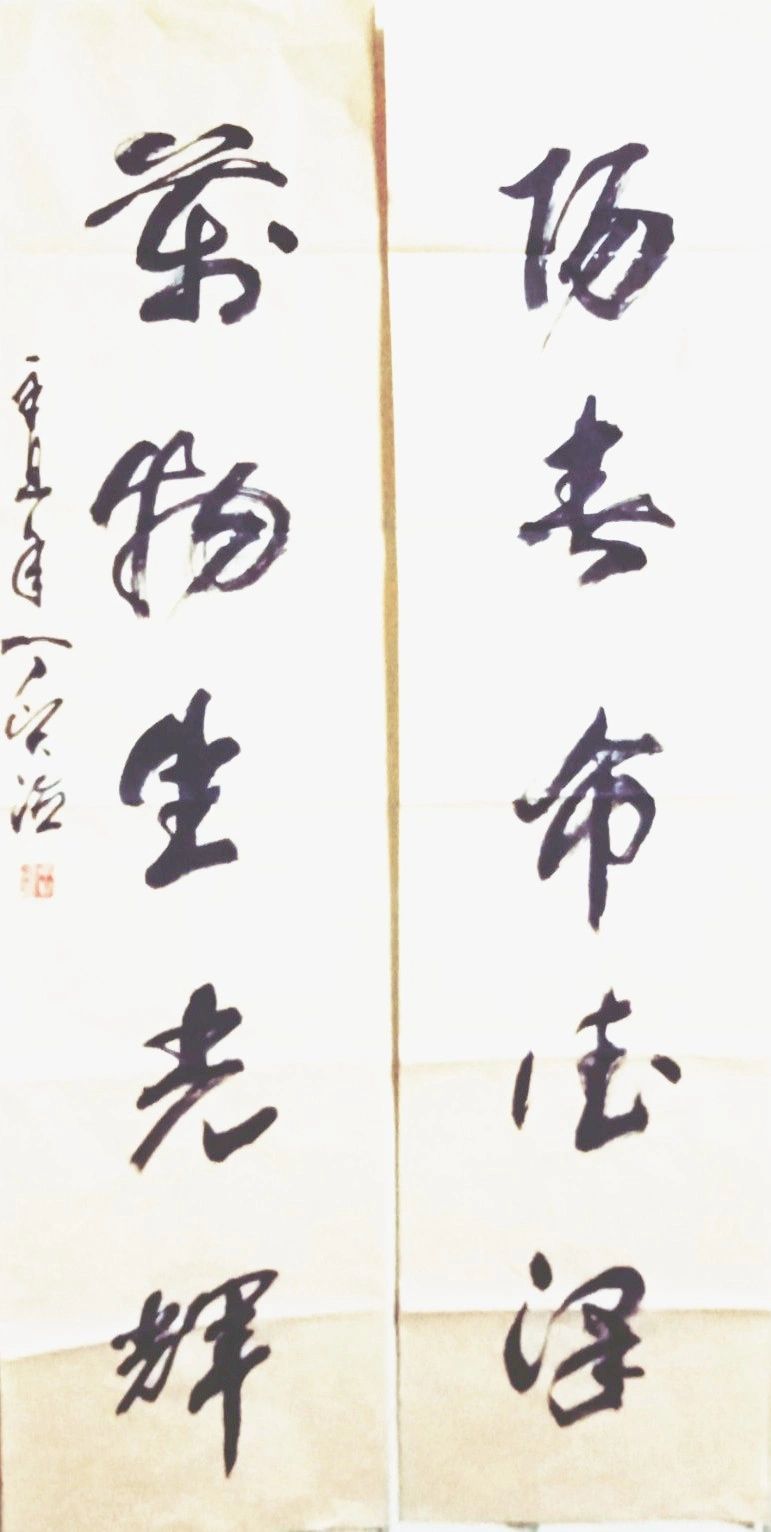 陽春布德澤
萬物生光輝
辛丑年